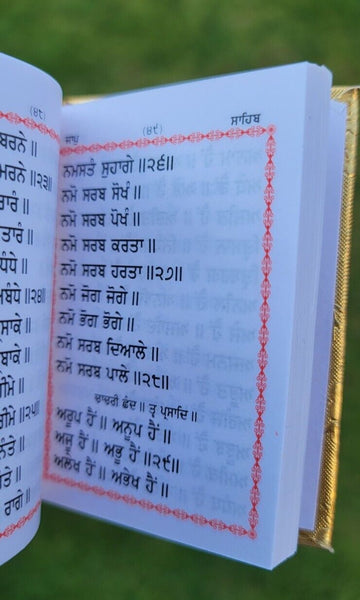 (੪੮)
ਬਰਨੇ ॥
ਮਰਨੇ ॥੨੩॥
ਤਾਰੰ ॥
ਧੰਧੇ ॥
ਬੰਧੇ ॥੨੪॥
ਸਾਕੇ ॥
ਬਾਕੇ ॥
ਰੀਮੇ ॥
ਰੀਮੇ ॥੨੫॥
ਰਾਗੇ ॥
ਜਾਪੁ (੪੯) ਸਾਹਿਬ
ਨਮਸਤੰ ਸੁਹਾਗੇ ॥੨੬॥
ਨਮੋ ਸਰਬ ਸੋਖੰ ॥
ਨਮੋ ਸਰਬ ਪੋਖੰ ॥
ਨਮੋ ਸਰਬ ਕਰਤਾ ॥
ਨਮੋ ਸਰਬ ਹਰਤਾ ॥੨੭॥
ਨਮੋ ਜੋਗ ਜੋਗੇ ॥
ਨਮੋ ਭੋਗ ਭੋਗੇ ॥
ਨਮੋ ਸਰਬ ਦਿਆਲੇ ॥
ਨਮੋ ਸਰਬ ਪਾਲੇ ॥੨੮॥
ਚਾਚਰੀ ਛੰਦ ॥ ਤ੍ਵ ਪ੍ਰਸਾਦਿ ॥
ਅਰੂਪ ਹੈਂ ॥ ਅਨੂਪ ਹੈਂ ॥
ਅਜੂ ਹੈਂ ॥ ਅਭੂ ਹੈਂ ॥੨੯॥
ਅਲੇਖ ਹੈਂ ॥ ਅਭੇਖ ਹੈਂ ॥